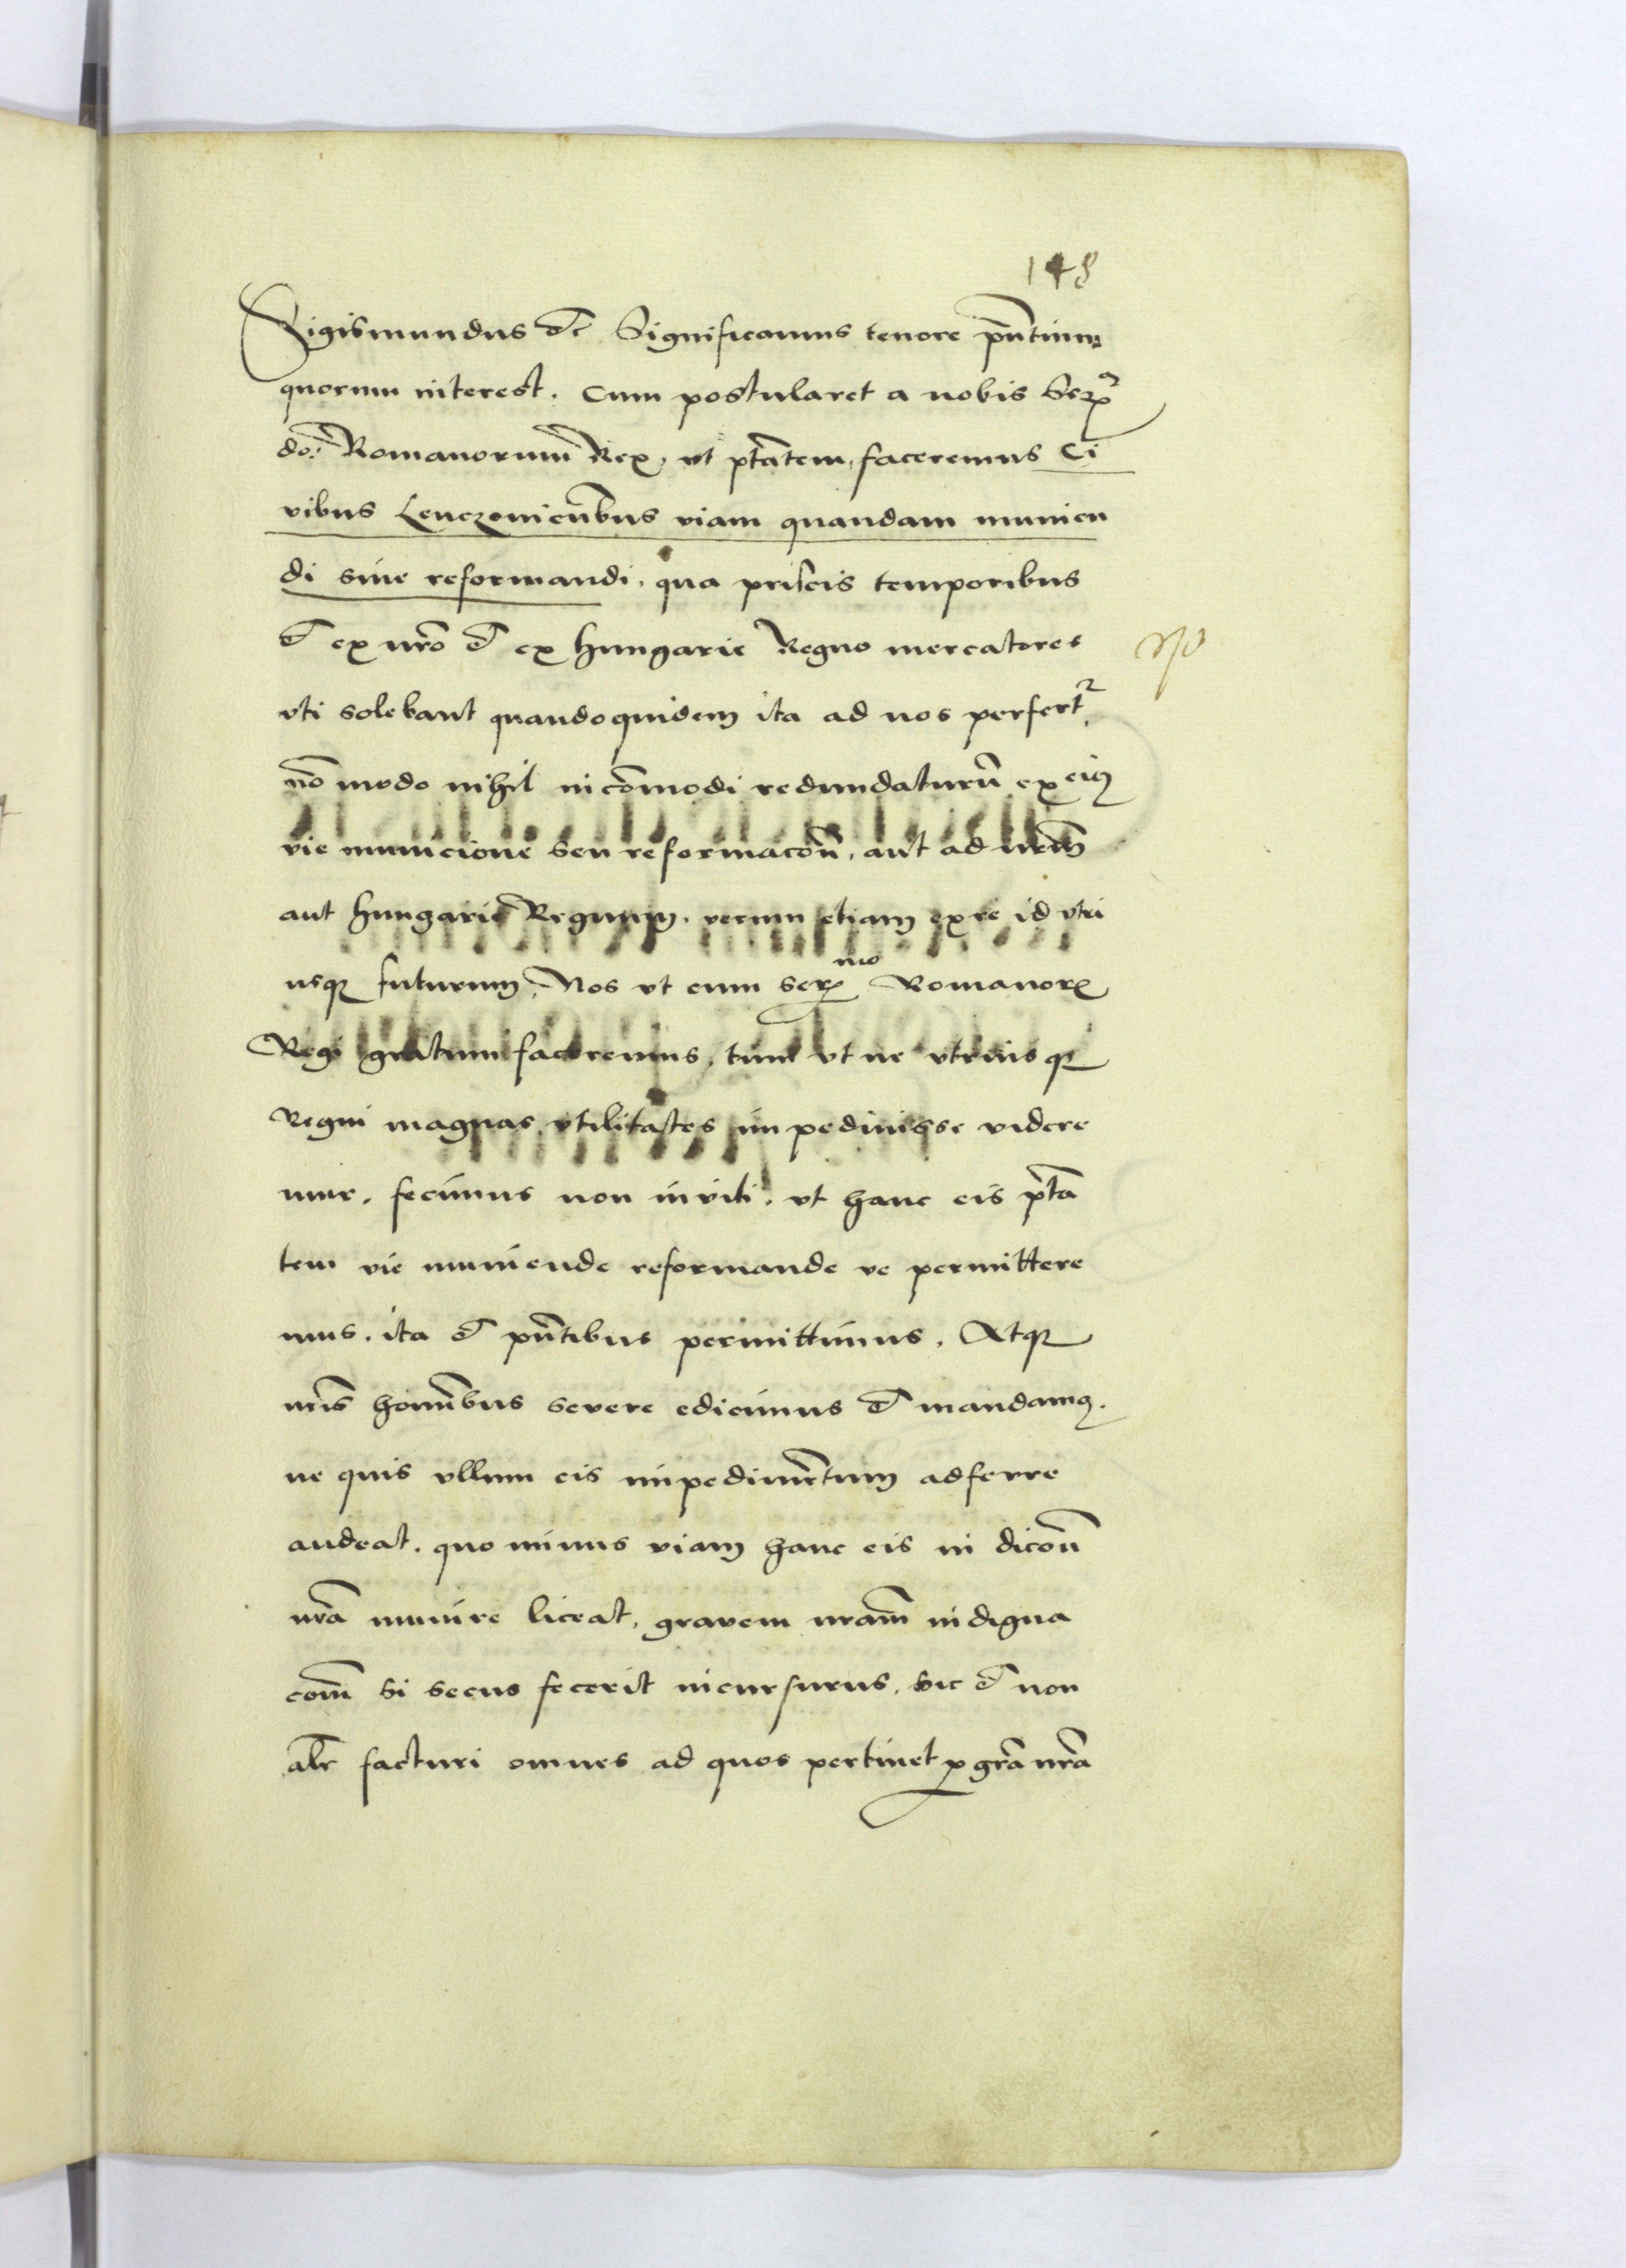 148
Sigismundus etc Significamus tenore pn̄tium
quorum interest. Cum postularet a nobis Ser
do: Romanorum Rex, ut ptātem faceremus Ci
vibus Leuczovien̄bus viam quandam munien
di sive reformandi, qua priscis temporibus
et ex nrō et ex Hungarie Regno mercatores
vti solebant quandoquidem ita ad nos perfert̄ᷣ
nō modo nihil incōmodi redundaturū ex eiꝰ
vie municione seu reformacōn̄, aut ad nrūm
aut Hungarie Regnum, verum etiam ex re id vtri
usqꝫ futurum, Nos ut cum Sermo Romanorꝝ
Regi gratum faceremus, tum ut ne vtriusqꝫ
Regni magnas vtilitates impedivisse videre
mur, fecimus non inviti, ut hanc eis ptā
tem vie muniende reformande ve permittere
mus, ita et pn̄tibus permittimus, Atqꝫ
nrīs homībus severe edicimus et mandamꝰ.
ne quis vllum eis impedimentum adferre
audeat, quo minus viam hanc eis in dicōn̄
nrā munire liceat, gravem nrām indigna
cōm̄ si secus fecerit incursurus, sic et non
alr̄ facturi omnes ad quos pertinet ꝑ grā nrā